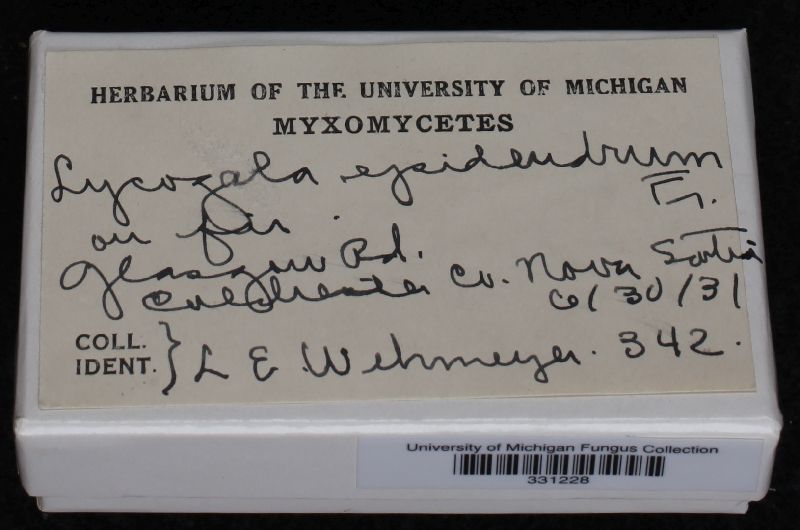 HERBARIUM OF THE UNIVERSITY OF MICHIGAN
MYXOMYCETES
Lycogala epidendrum
Fr.
on fir.
Glasgow Rd.
Colchester Co. Nova Scotia
6/30/31
COLL.
IDENT. } L E Wehmeyer. 342.
University of Michigan Fungus Collection
331228